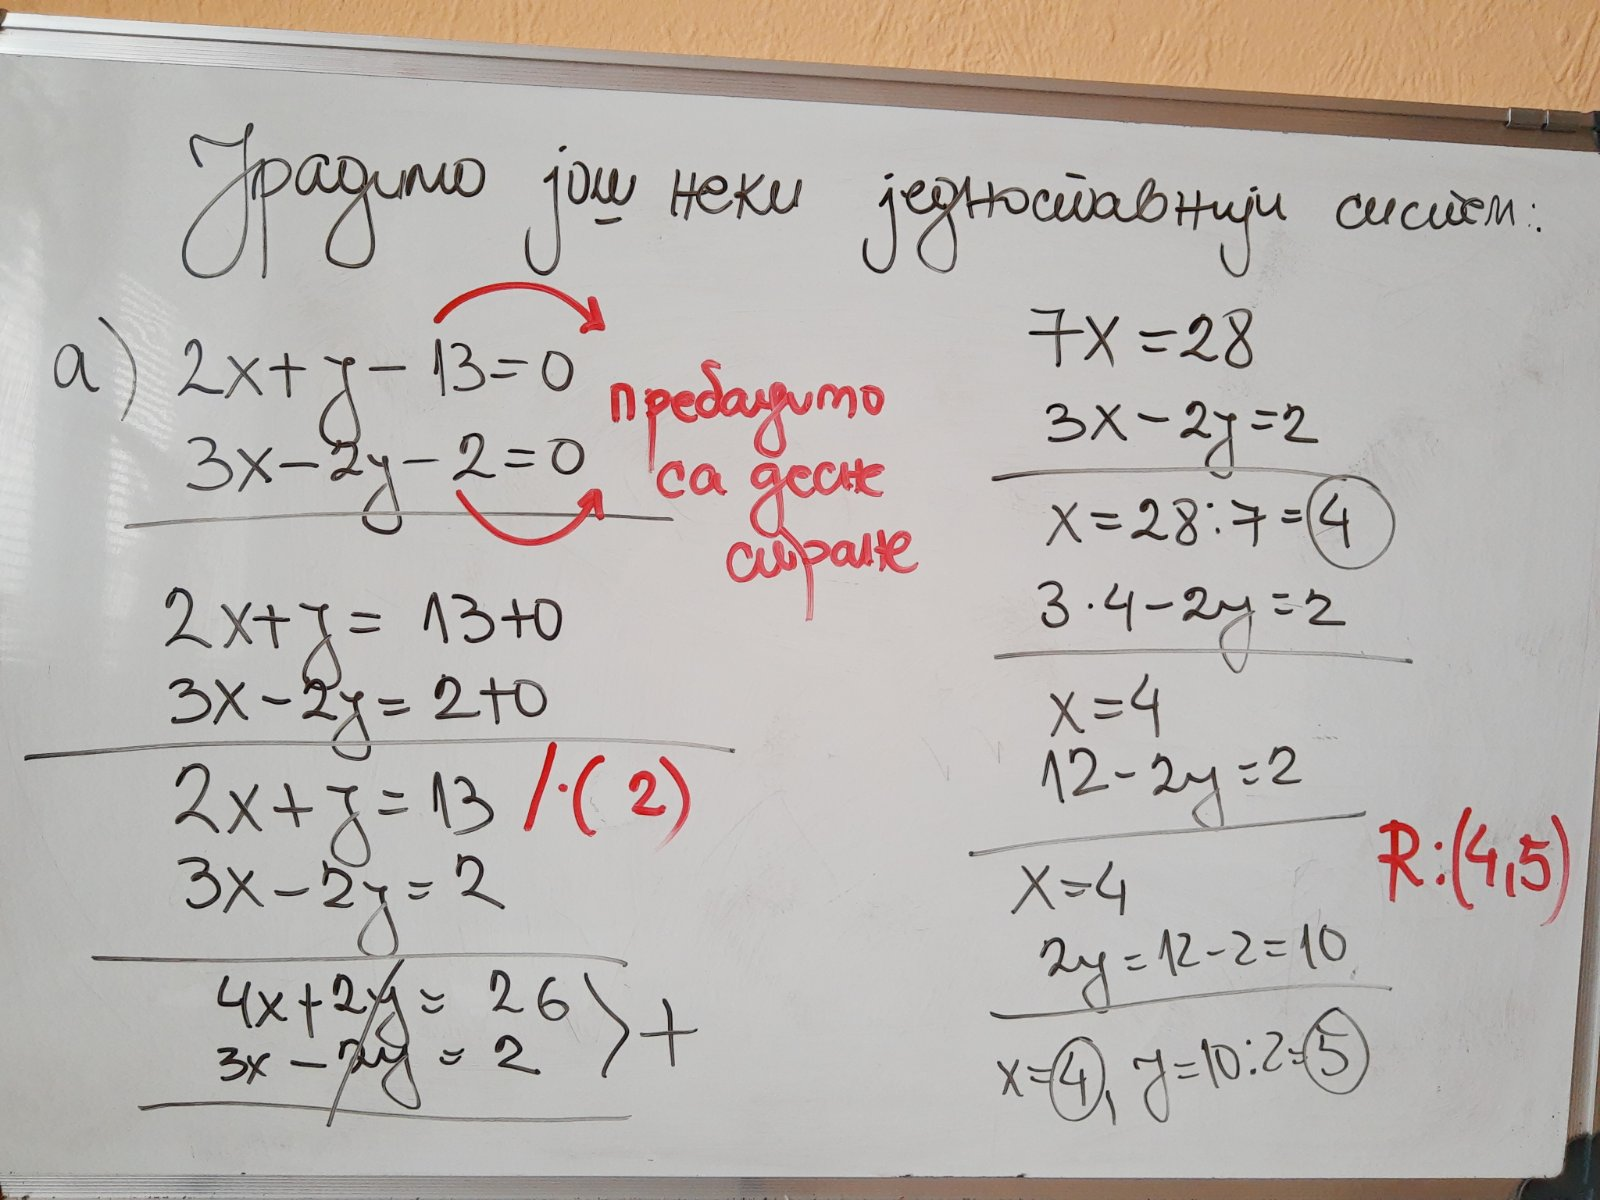 Урадимо још неки једноставнији систем:
а) 2x+y-13=0
3x-2y-2=0
пребацимо
са десне
стране
2x+y= 13+0
3x-2y= 2+0
2x+y=13 /·( 2)
3x-2y=2
4x+2y= 26
3x-2y= 2
+
7x=28
3x-2y=2
x=28:7=4
3·4-2y=2
x=4
12-2y=2
x=4
2y=12-2=10
x=4, y=10:2=5
R:(4,5)